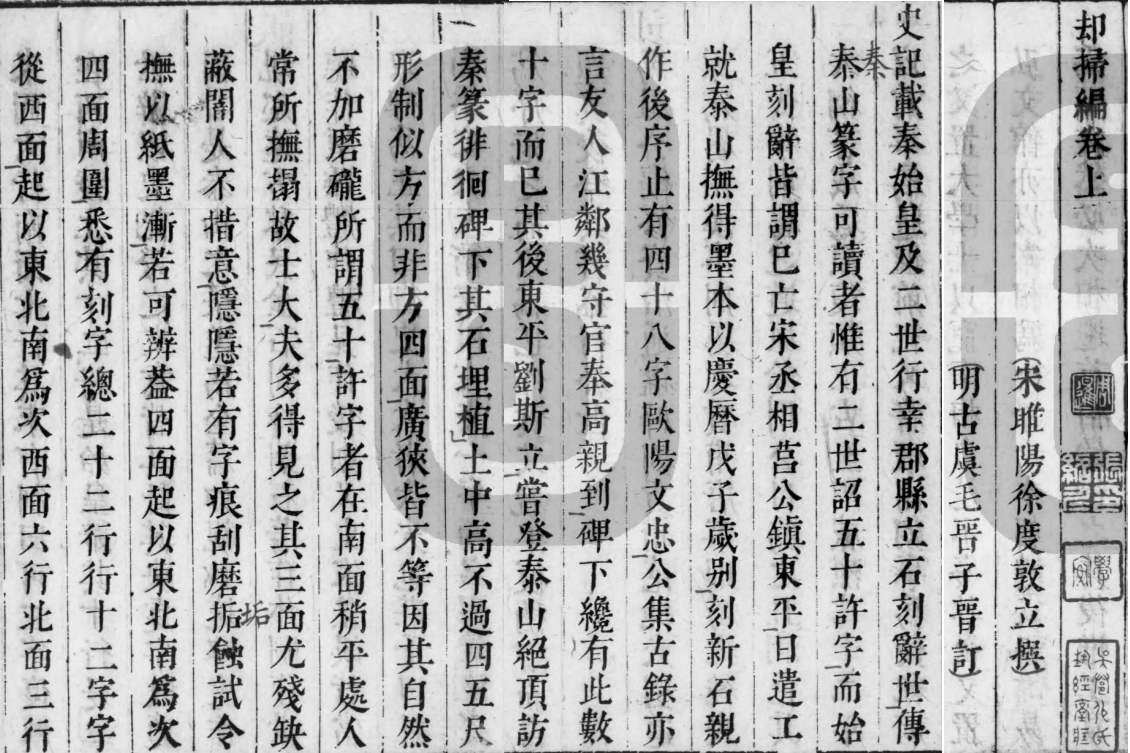 却掃編卷上
宋睢陽徐度敦立撰
明古虞毛晉子晉訂
史記載秦始皇及二世行幸郡縣立石刻辭世傳
泰山篆字可讀者惟有二世詔五十許字而始
秦
皇刻辭皆謂已亡宋丞相莒公鎮東平日遣工
就泰山撫得墨本以慶曆戊子歲别刻新石親
作後序止有四十八字歐陽文忠公集古錄亦
言友人江鄰幾守官奉高親到碑下纔有此數
十字而已其後東平劉斯立嘗登泰山絕頂訪
秦篆徘徊碑下其石埋植土中高不過四五尺
形制似方而非方四面廣狹皆不等因其自然
不加磨礲所謂五十許字者在南面稍平處人
常所撫搨故士大夫多得見之其三面尤殘缺
蔽闇人不措意隱隱若有字痕刮磨垢蝕試令
垢
撫以紙墨漸若可辨葢四面起以東北南爲次
四面周圍悉有刻字總二十二行行十二字字
從西面起以東北南爲次西面六行北面三行